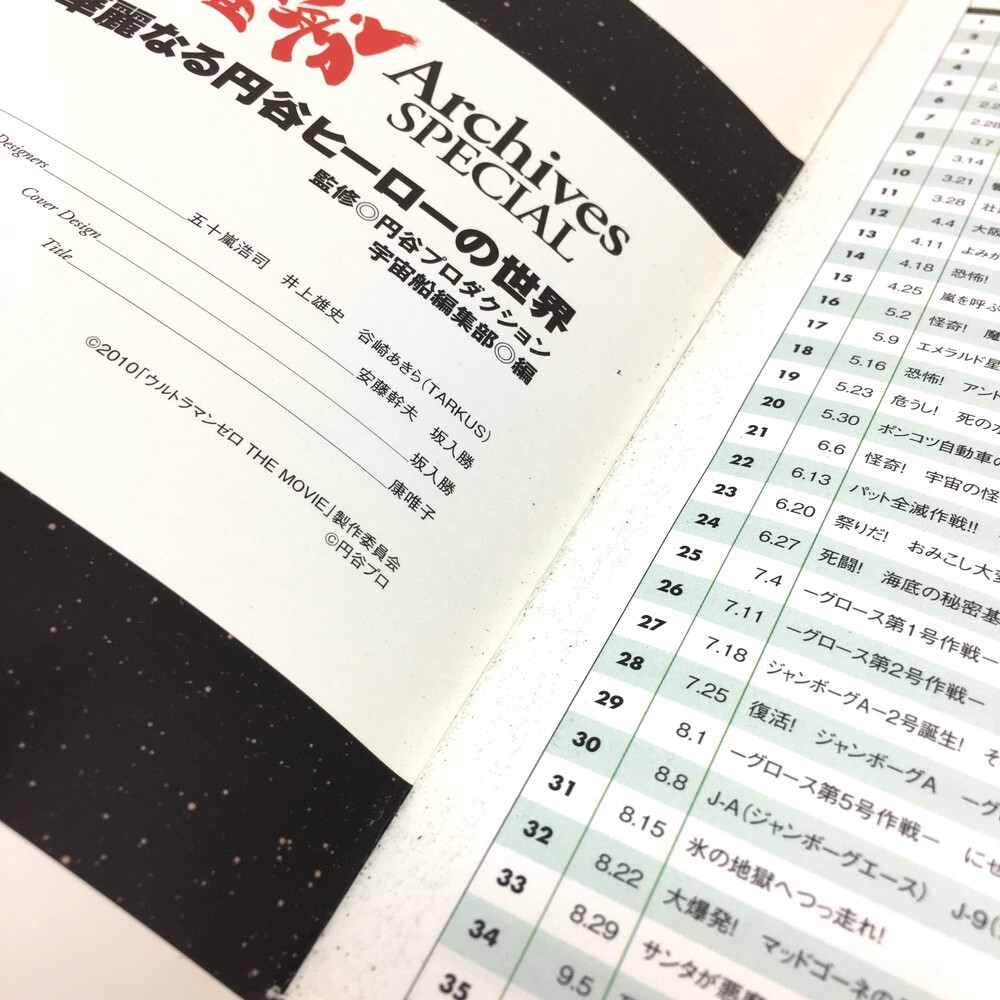 Archives
SPECIAL
華麗なる円谷ヒーローの世界
監修◎円谷プロダクション
宇宙船編集部◎編
Designers 五十嵐浩司 井上雄史 谷崎あきら(TARKUS)
安藤幹夫 坂入勝
Cover Design 坂入勝
Title 康唯子
©2010「ウルトラマンゼロ THE MOVIE」製作委員会
©円谷プロ
1
2
4
5 2.
6 2.2
7 2.28
8 3.7
9 3.14
10 3.21
11 3.28 壮
12 4.4 大阪
13 4.11 よみが
14 4.18 恐怖!
15 4.25 嵐を呼ぶ
16 5.2 怪奇! 魔
17 5.9 エメラルド星
18 5.16 恐怖! アンド
19 5.23 危うし! 死の
20 5.30 ポンコツ自動車の
21 6.6 怪奇! 宇宙の怪
22 6.13 パット全滅作戦!!
23 6.20 祭りだ! おみこし大変
24 6.27 死闘! 海底の秘密基
25 7.4 ーグロース第1号作戦ー
26 7.11 ーグロース第2号作戦ー
27 7.18 ジャンボーグA-2号誕生! そ
28 7.25 復活! ジャンボーグA ーグ
29 8.1 ーグロース第5号作戦ー にせ
30 8.8 J-A(ジャンボーグエース) J-9(
31 8.15 氷の地獄へつっ走れ!
32 8.22 大爆発! マッドゴーネの
33 8.29 サンタが悪
34 9.5
35